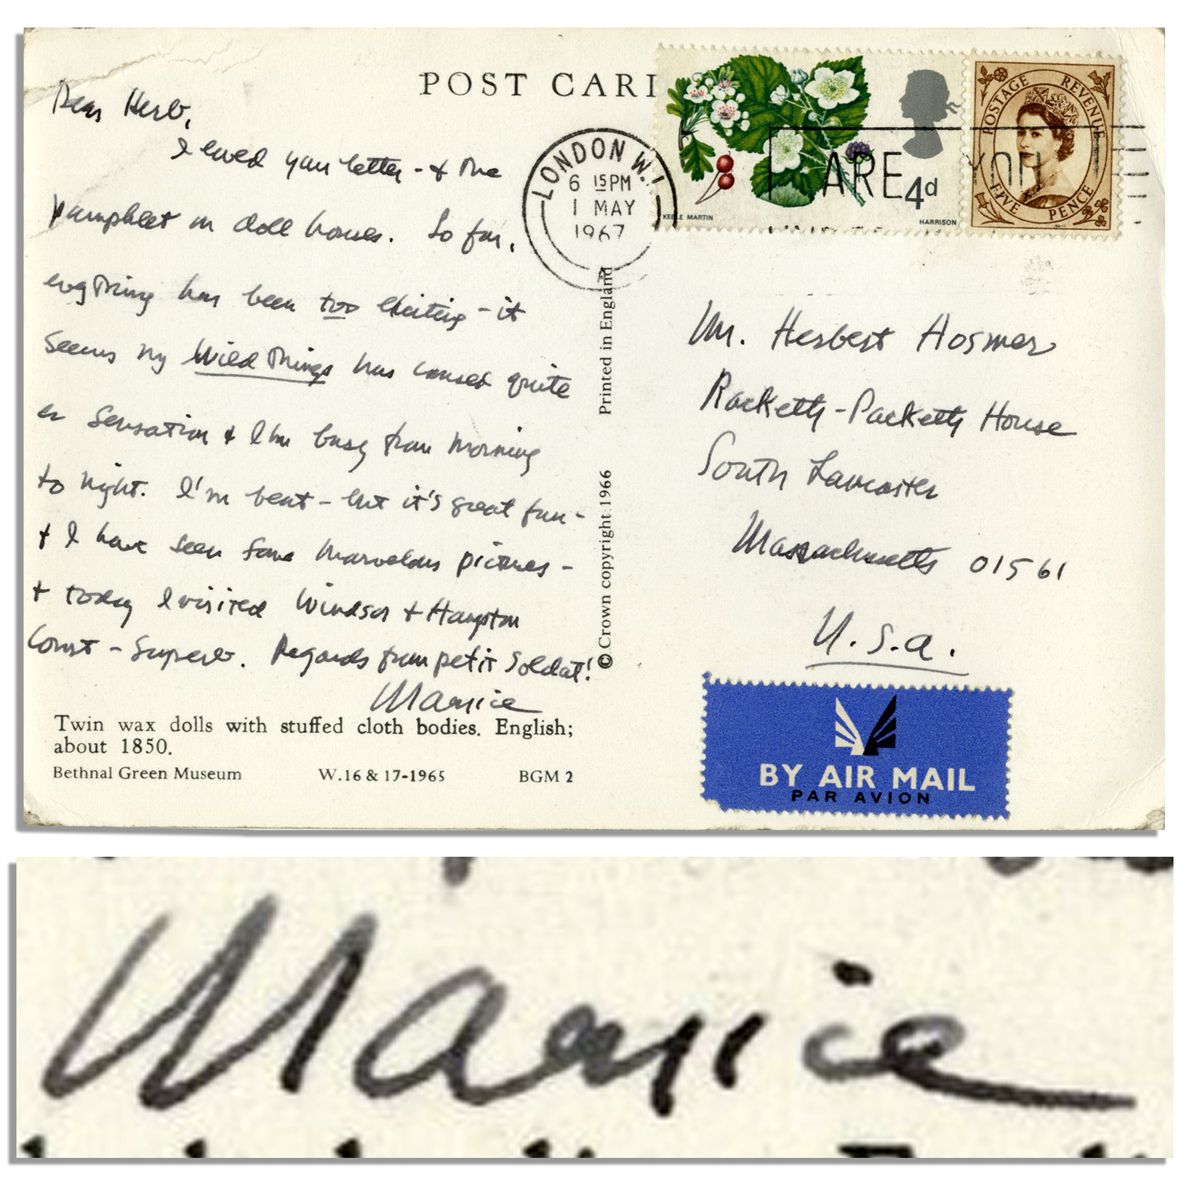 POST CARD
Dear Herb,
I loved your letter - & the
pamphlet on doll houses. So far,
everything has been too exciting - it
seems my Wild Things has caused quite
a sensation & I'm busy from morning
to night. I'm beat - but it's great fun -
& I have seen some marvelous pictures -
& today I visited Windsor & Hampton
Court - Superb. Regards from petit soldat!
Maurice
Twin wax dolls with stuffed cloth bodies. English;
about 1850.
Bethnal Green Museum W.16 & 17-1965 BGM 2
© Crown copyright 1966 Printed in England
LONDON W.1
6 15PM
1 MAY
1967
A
ARE YOU
4d
KEBLE MARTIN
HARRISON
POSTAGE REVENUE
FIVE PENCE
Mr. Herbert Hosmer
Racketty-Packetty House
South Lancaster
Massachusetts 01561
U.S.A.
BY AIR MAIL
PAR AVION
Maurice